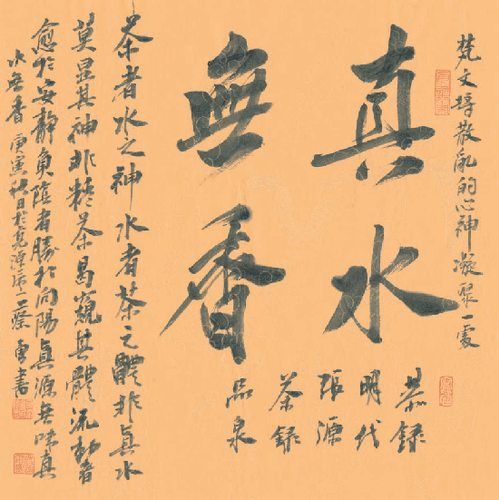 梵文将散亂的心神凝聚一處
真水
無香
恭錄
明代
張源
茶錄
品泉
茶者水之神水者茶之體非真水
莫显其神非精茶曷窺其體流動者
愈於安靜負陰者勝於向陽真源無味真
水無香 庚寅秋日於